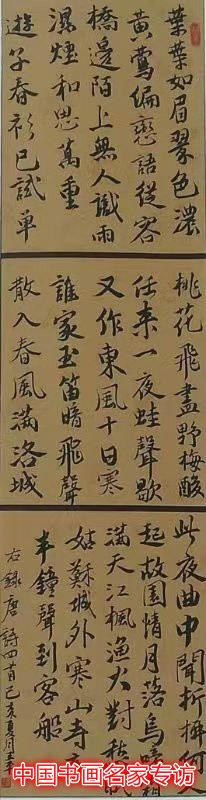 葉葉如眉翠色濃
黃鶯偏戀語從容
橋邊陌上無人識雨
濕煙和思萬重
遊子春衫已試單
桃花飛盡野梅酸
怪來一夜蛙聲歇
又作東風十日寒
誰家玉笛暗飛聲
散入春風滿洛城
此夜曲中聞折柳何人
起故園情月落烏啼霜
滿天江楓漁火對愁
姑蘇城外寒山寺
半鐘聲到客船
右錄唐詩四首己亥夏月
中国书画名家专访